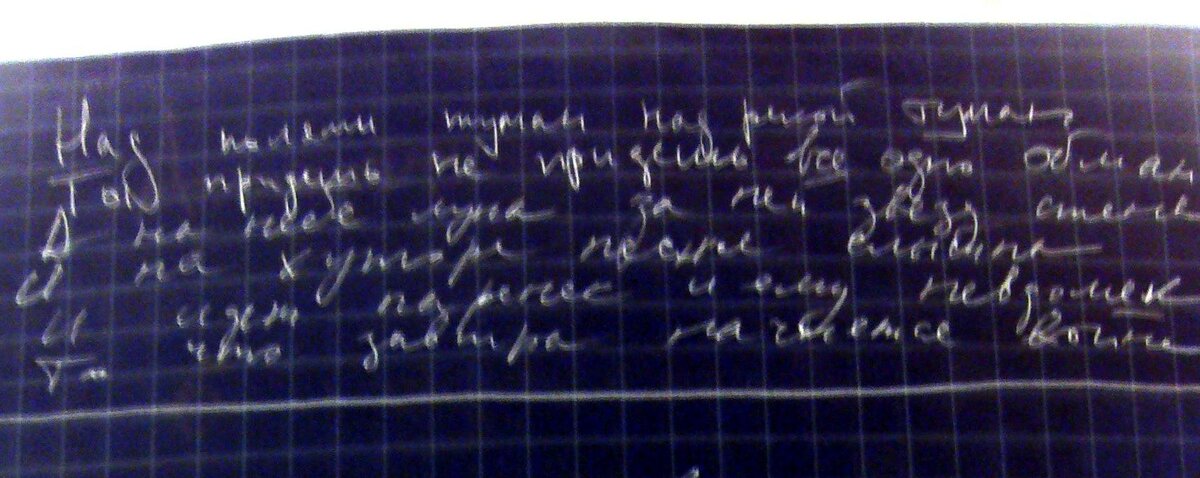 Над полями туман над рекой туман
Тоб придешь не придешь все одно обман
А на небе луна за ней звезд стена
И на хуторе песня слышна
И идет паренек и ему невдомек
То что завтра начнется война